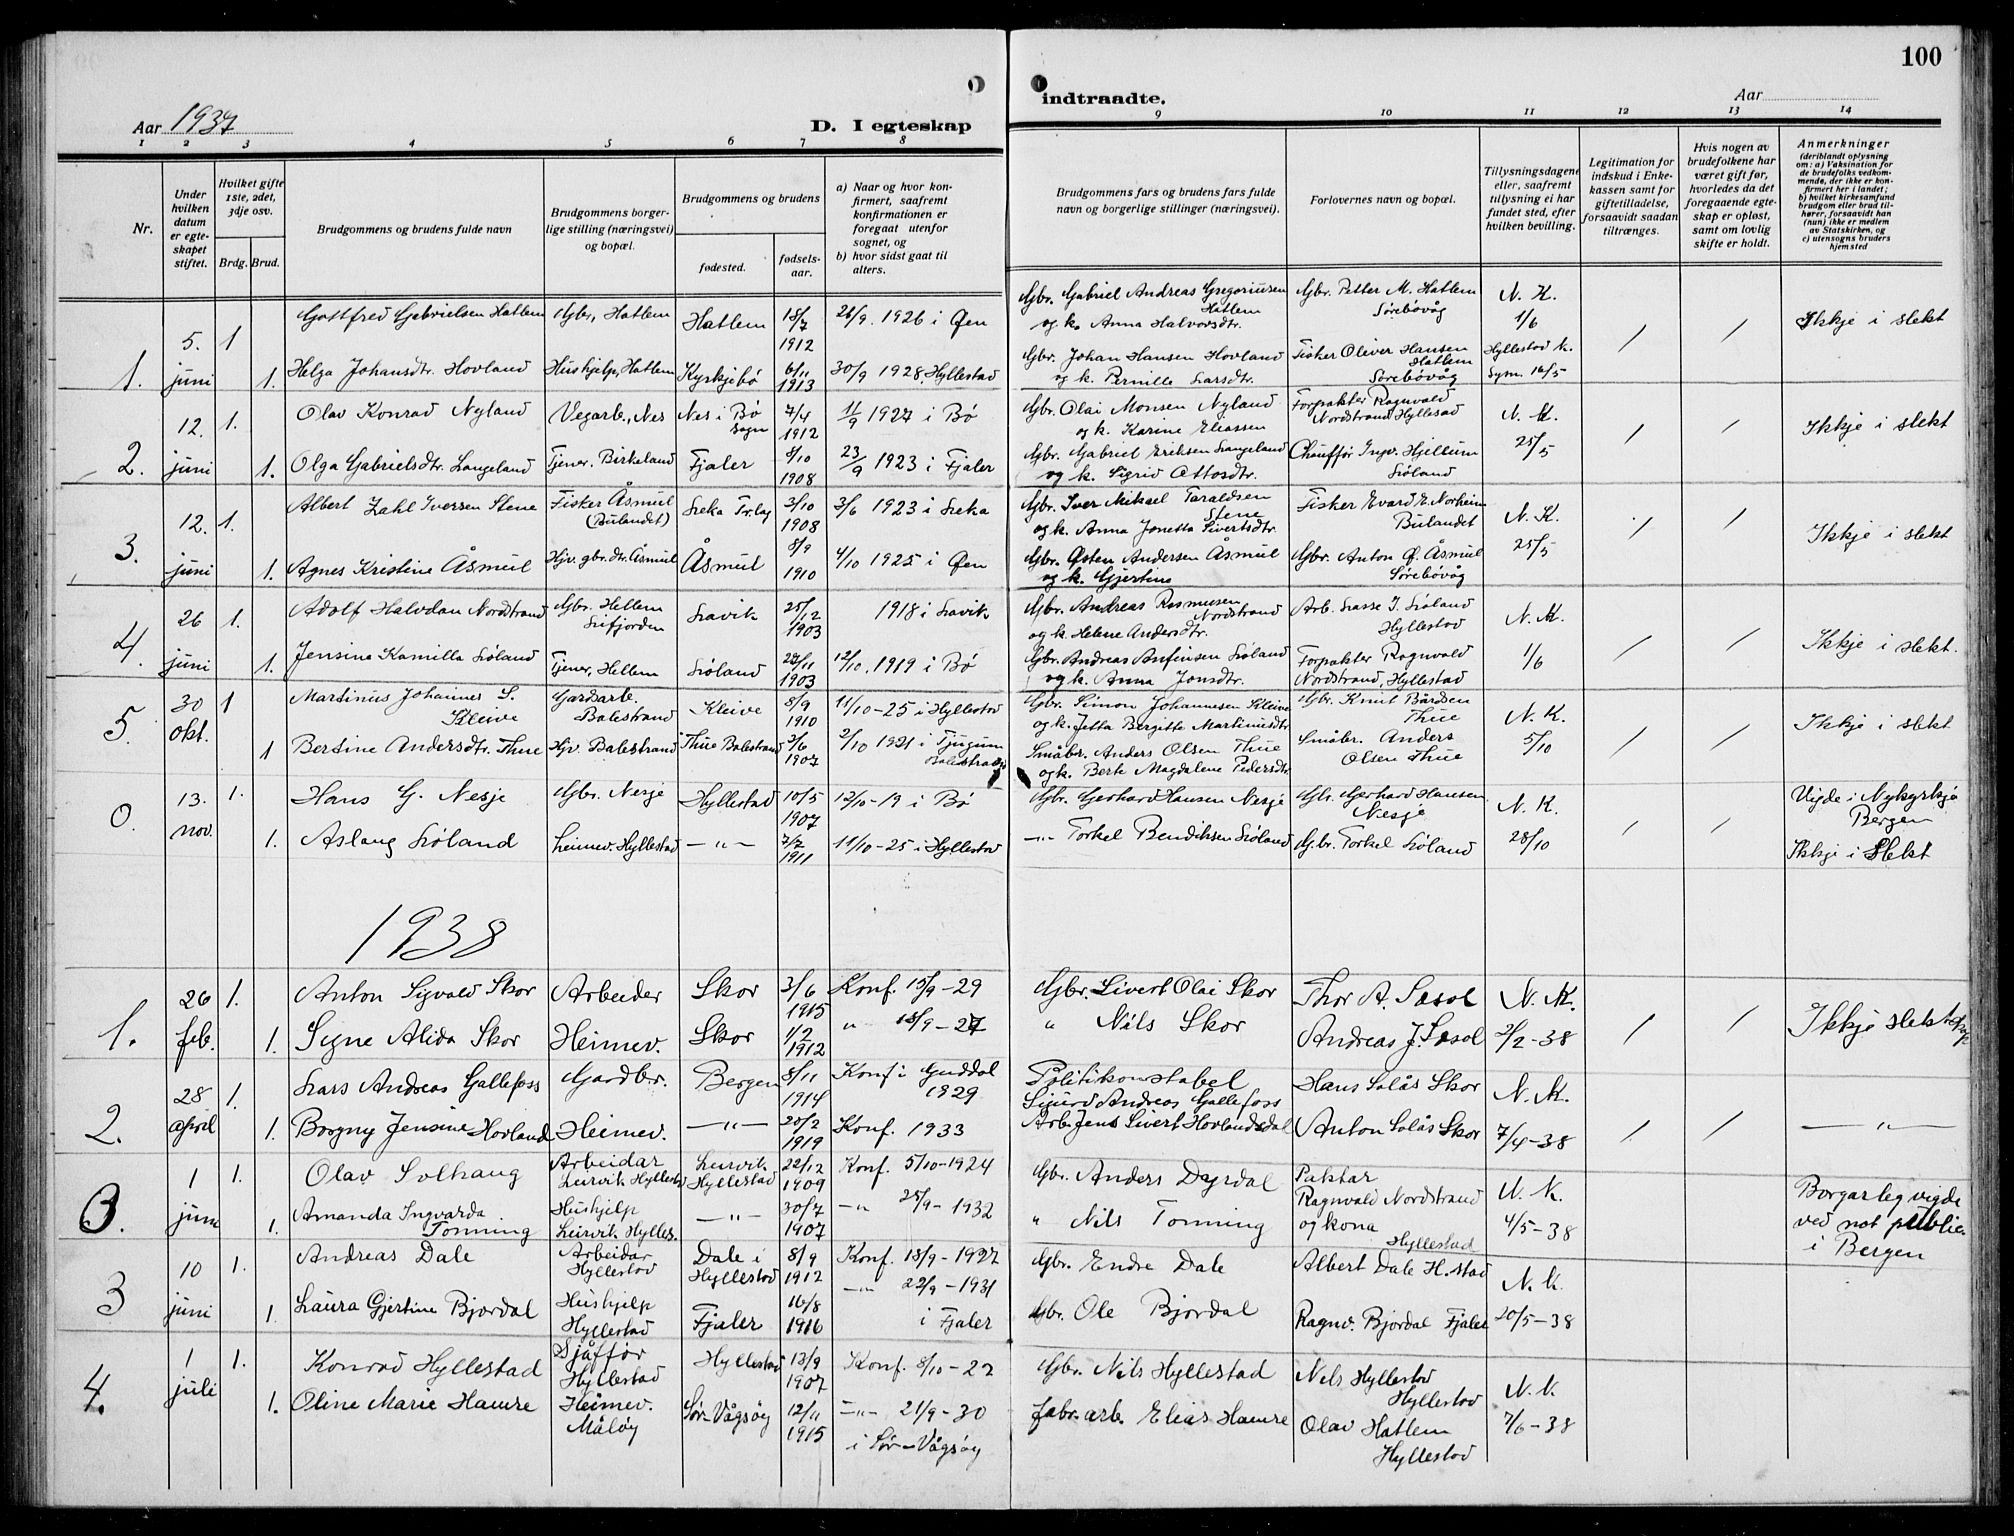 100
Aar 1937
D. I egteskap
indtraadte.
Aar
1 2 3 4 5 6 7 8 9 10 11 12 13 14
Nr.
Under hvilken datum er egteskapet stiftet.
Hvilket gifte 1ste, 2det, 3dje osv.
Brdg. Brud.
Brudgommens og brudens fulde navn
Brudgommens borgerlige stilling (næringsvei) og bopæl.
Brudgommens og brudens
fødested.
fødselsaar.
a) Naar og hvor konfirmert, saafremt konfirmationen er foregaat utenfor sognet, og
b) hvor sidst gaat til alters.
Brudgommens fars og brudens fars fulde navn og borgerlige stillinger (næringsvei).
Forlovernes navn og bopæl.
Tillysningsdagene eller, saafremt tillysning ei har fundet sted, efter hvilken bevilling.
Legitimation for indskud i Enkekassen samt for giftetilladelse, forsaavidt saadan tiltrænges.
Hvis nogen av brudefolkene har været gift før, hvorledes da det foregaaende egteskap er opløst, samt om lovlig skifte er holdt.
Anmerkninger
(deriblandt oplysning om: a) Vaksination for de brudefolks vedkommende, der ikke er konfirmert her i landet; b) hvilket kirkesamfund brudgom eller brud tilhører, forsaavidt han (hun) ikke er medlem av Statskirken, og c) utensogns bruders hjemsted
1. 5. juni 1 Gottfred Gabrielsen Hatlem Gbr. Hatlem Hatlem 18/7 1912 26/9 1926 i Øen Gbr. Gabriel Andreas Gregoriusen Hatlem og k. Anna Halvorsdtr. Gbr. Petter M. Hatlem Sørebøvåg N. K. 1/6 / / Ikkje i slekt
1. Helga Johansdtr. Hovland Hushjelp, Hatlem Kyrkjebø 6/11 1913 30/9 1928, Hyllestad Gbr. Johan Hansen Hovland og k. Pernille Larsdtr. Fisker Oliver Hansen Hatlem Sørebøvåg Hyllestad K. Sym. 16/5
2. 12. juni 1. Olav Konrad Nyland Vegarb., Nes Nes i Bø sogn 7/4 1912 11/9 1927 i Bø Gbr. Olai Monsen Nyland og k. Karine Eliassen Forpakter Ragnvald Nordstrand, Hyllestad N. K. 25/5 / / Ikkje i slekt
1. Olga Gabrielsdtr. Langeland Tjener, Birkeland Fjaler 8/10 1908 23/9 1923 i Fjaler Gbr. Gabriel Eriksen Langeland og k. Sigrid Ottosdtr. Chauffør Ingv. Hjellum Lioland
3. 12. juni 1. Albert Zahl Iversen Stene Fisker Åsmul (Bulandet) Leka Tr.lag 3/10 1908 3/6 1923 i Leka Gbr. Iver Mikael Taraldsen Stene og k. Anna Jonetta Sivertsdtr. Fisker Evard E. Norheim Bulandet N. K. 25/5 / / Ikkje i slekt
1. Agnes Kristine Åsmul Hjv. gbr. dtr. Åsmul Åsmul 8/9 1910 4/10 1925 i Øen Gbr. Østen Andersen Åsmul og k. Gjertine Gbr. Anton Ø. Åsmul Sørebøvåg
4. 26 juni 1. Adolf Halvdan Nordstrand Gbr. Hellem Lifjorden Lavik 25/12 1903 1918 i Lavik Gbr. Andreas Rasmusen Nordstrand og k. Helene Andersdtr. Arb. Lasse I. Lioland Hyllestad N. K. 1/6 / / Ikkje i slekt.
1. Jensine Kamilla Lioland Tjener, Hellem Lioland 28/11 1903 12/10. 1919 i Bø Gbr. Andreas Anfinsen Lioland og k. Anna Jonsdtr. Forpakter Ragnvald Nordstrand, Hyllestad
5. 30 okt. 1 Martinus Johannes S. Kleive Gardsarb. Balestrand Kleive 8/9 1910 11/10-25 i Hyllestad Gbr. Simon Johannesen Kleive og k. Jetta Bergitte Martinusdtr. Gbr. Knut Bårdsen Thue N. K. 5/10 / / Ikkje i slekt
1 Bertine Andersdtr. Thue Hjv. Balestrand Thue Balestrand 2/6 1907 2/10 1921 i Tjugum Balestrand Småbr. Anders Olsen Thue og k. Berte Magdalene Pedersdtr. Småbr. Anders Olsen Thue
0. 13. nov. 1. Hans G. Nesje Gbr. Nesje Hyllestad 10/5 1907 12/10-19 i Bø Gbr. Gerhard Hansen Nesje Gbr. Gerhard Hansen Nesje N. K. 28/10 / / Vigde i Nykyrkja Bergen
1. Aslaug Lioland Heimev. Hyllestad -"- 7/7 1911 11/10-25 i Hyllestad -"- Torkel Bendiksen Lioland Gbr. Torkel Lioland Ikkje i slekt
1938
1. 26 feb. 1. Anton Sigvald Skor Arbeider Skor 3/6 1915 Konf. 15/9-29 Gbr. Sivert Olai Skor Thor A. Sæsol N. K. 2/2-38 / / Ikkje slektskap
1. Signe Alida Skor Heimev. Skor 1/2 1912 " 18/9-27 " Nils Skor Andreas J. Sæsol
2. 28 april 1. Lars Andreas Gallefoss Gardbr. Bergen 8/11 1914 Konf i Guddal 1929 Politikonstabel Sigurd Andreas Gallefoss Hans Solås Skor N. K. 7/4-38 / / -"-
1. Borgny Jensine Hovland Heimev. -"- 20/2 1919 Konf. 1933 Arb. Jens Sivert Hovlandsdal Anton Solås Skor
3. 1 juni 1. Olav Solhaug Arbeidar Leirvik Hyllestad Leirvik Hyllestad 22/12 1909 Konf. 5/10-1924 Gbr. Anders Dyrdal Paktar Ragnvald Nordstrand og kona Hyllestad N. K. 4/5-38 Borgarleg vigde ved not public. i Bergen
1. Amanda Ingvarda Tonning Hushjelp Leirvik Hylles. -"- 30/7 1907 -"- 25/9-1932 " Nils Tonning
3 10 juni 1. Andreas Dale Arbeidar Hyllestad Dale i Hyllestad 8/9 1912 Konf. 18/9-1927 Gbr. Endre Dale Albert Dale H.stad N. K. 20/5-38
1. Laura Gjertine Bjordal Hushjelp Hyllestad Fjaler 16/8 1916 -"- 22/9-1931 i Fjaler Gbr. Ole Bjordal Ragnv. Bjordal Fjaler
4. 1 juli 1. Konrad Hyllestad Sjåffør Hyllestad Hyllestad 13/9 1907 Konf. 8/10-22 Gbr. Nils Hyllestad Nils Hyllestad Hyllestad N. K. 7/6-38
1. Oline Marie Hamre Heimev. Måløy Sør-Vågsøy 12/11 1915 -"- 21/9-30 i Sør-Vågsøy fabr.arb. Elias Hamre Olav Hatlem Hyllestad